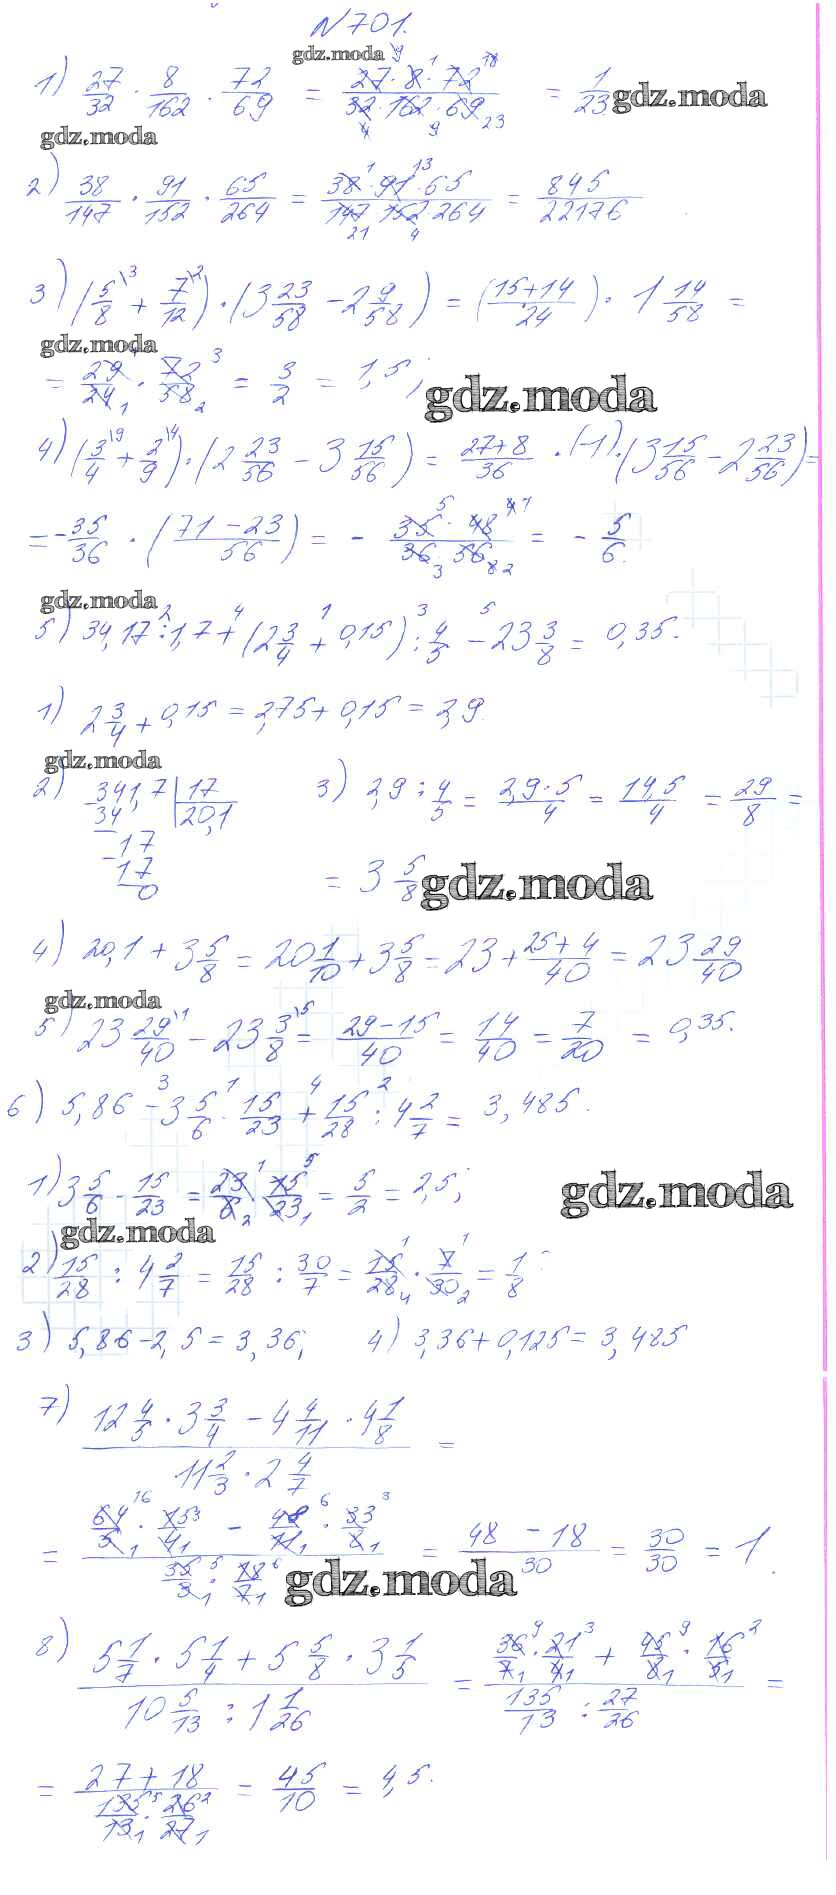 N 701.
gdz.moda
1) 27/32 · 8/162 · 72/69 = 27·8·72/32·162·69 = 1/23 gdz.moda
gdz.moda
2) 38/147 · 91/152 · 65/264 = 38·91·65/147·152·264 = 845/22176
3) (5/8 + 7/12) · (3 23/58 - 2 9/58) = (15+14/24) · 1 14/58 =
gdz.moda
= 29/24 · 72/58 = 3/2 = 1,5; gdz.moda
4) (3/4 + 2/9) · (2 23/56 - 3 15/56) = 27+8/36 · (-1) · (3 15/56 - 2 23/56) =
= -35/36 · (71-23/56) = - 35·48/36·56 = - 5/6.
gdz.moda
5) 34,17 : 1,7 + (2 3/4 + 0,15) : 4/5 - 23 3/8 = 0,35.
1) 2 3/4 + 0,15 = 2,75 + 0,15 = 2,9.
gdz.moda
2) 341,7 | 17 3) 2,9 : 4/5 = 2,9·5/4 = 14,5/4 = 29/8 =
34 20,1
17
17
0 = 3 5/8 gdz.moda
4) 20,1 + 3 5/8 = 20 1/10 + 3 5/8 = 23 + 25+4/40 = 23 29/40
gdz.moda
5) 23 29/40 - 23 3/8 = 29-15/40 = 14/40 = 7/20 = 0,35.
6) 5,86 - 3 5/6 · 15/23 + 15/28 : 4 2/7 = 3,485.
1) 3 5/6 - 15/23 = 23/6 · 15/23 = 5/2 = 2,5; gdz.moda
gdz.moda
2) 15/28 : 4 2/7 = 15/28 : 30/7 = 15/28 · 7/30 = 1/8;
3) 5,86 - 2,5 = 3,36; 4) 3,36 + 0,125 = 3,485
7) 12 4/5 · 3 3/4 - 4 4/11 · 4 1/8 / 11 2/3 · 2 4/7 =
= 64/5 · 15/4 - 48/11 · 33/8 / 35/3 · 18/7 = 48 - 18/30 = 30/30 = 1.
gdz.moda
8) 5 1/7 · 5 1/4 + 5 5/8 · 3 1/5 / 10 5/13 : 1 1/26 = 36/7 · 21/4 + 45/8 · 16/5 / 135/13 : 27/26 =
= 27 + 18 / 135/13 · 26/27 = 45/10 = 4,5.